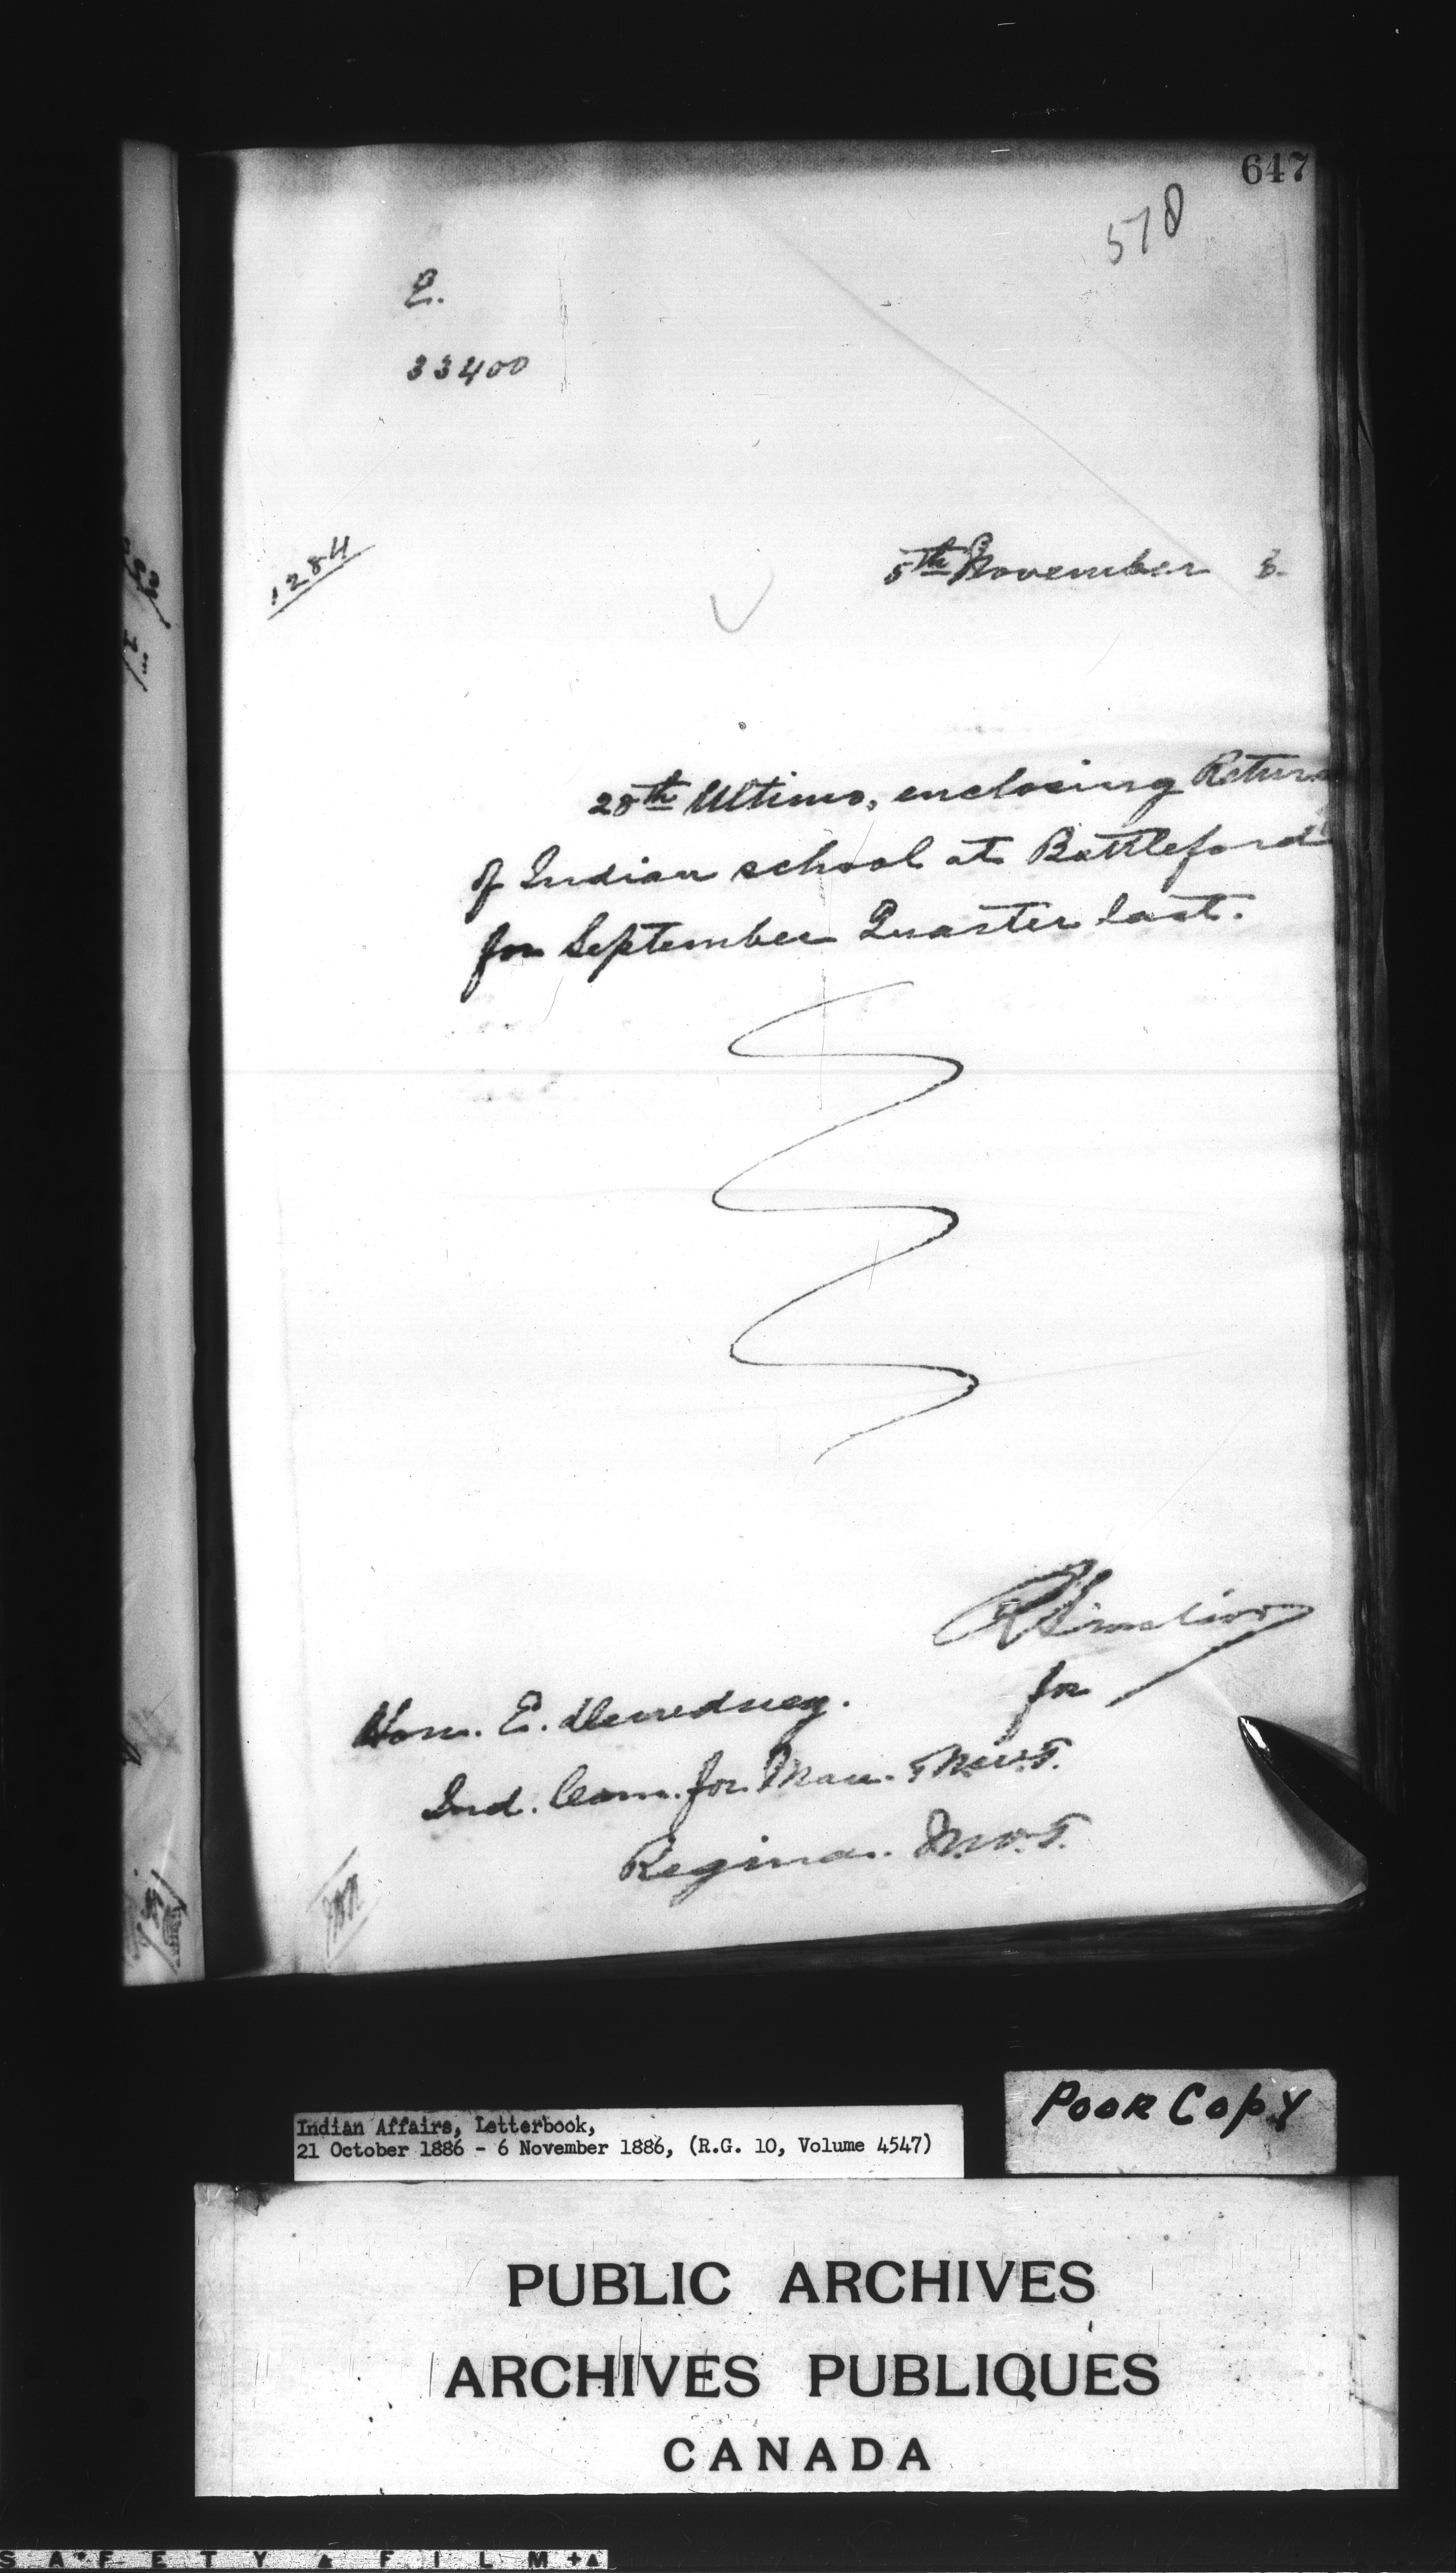 647
578
E.
33400
1284
5th November 6.
28th Ultimo, enclosing Return
of Indian school at Battleford
for September Quarter last.
for
Hon. E. Dewdney.
Ind. Com. for Man. & N.W.T.
Regina. N.W.T.
Poor Copy
Indian Affairs, Letterbook,
21 October 1886 - 6 November 1886, (R.G. 10, Volume 4547)
PUBLIC ARCHIVES
ARCHIVES PUBLIQUES
CANADA
SAFETY FILM